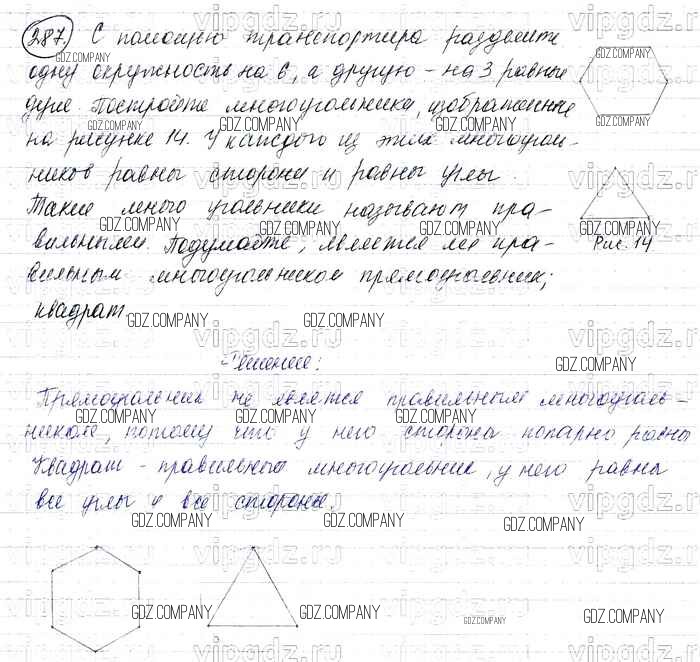 287. С помощью транспортира разделите
одну окружность на 6, а другую – на 3 равные
дуги. Постройте многоугольники, изображенные
на рисунке 14. У каждого из этих многоуголь-
ников равны стороны и равны углы.
Такие много угольники называют пра-
вильными. Подумайте, является ли пра-
вильным многоугольником прямоугольник;
квадрат.
Рис. 14
Решение:
Прямоугольник не является правильным многоуголь-
ником, потому что у него стороны попарно равны
Квадрат - правильный многоугольник, у него равны
все углы и все стороны.
GDZ.COMPANY
vipgdz.ru